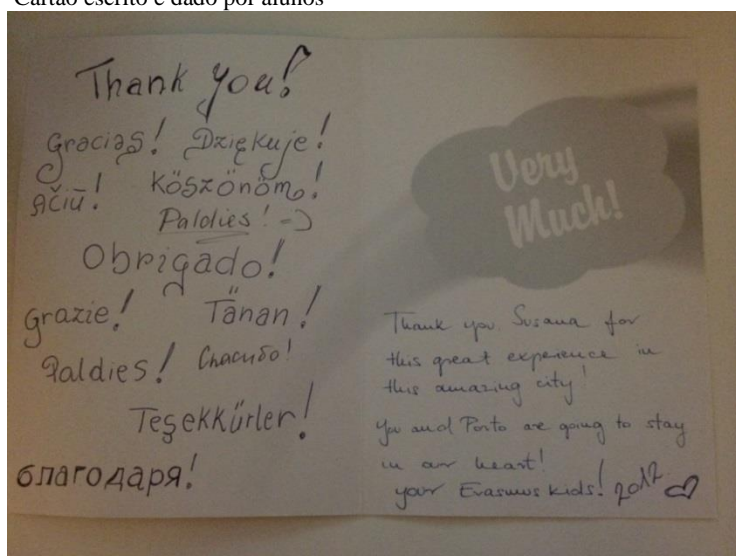 Cartão escrito e dado por alunos
Thank you!
Gracias! Dziękuje!
Ačiū! Köszönöm!
Paldies! :-)
Obrigado!
Grazie! Tänan!
Paldies! Спасибо!
Teşekkürler!
благодаря!
Very
Much!
Thank you Susana for
this great experience in
this amazing city!
You and Porto are going to stay
in our heart!
your Erasmus kids! 2012